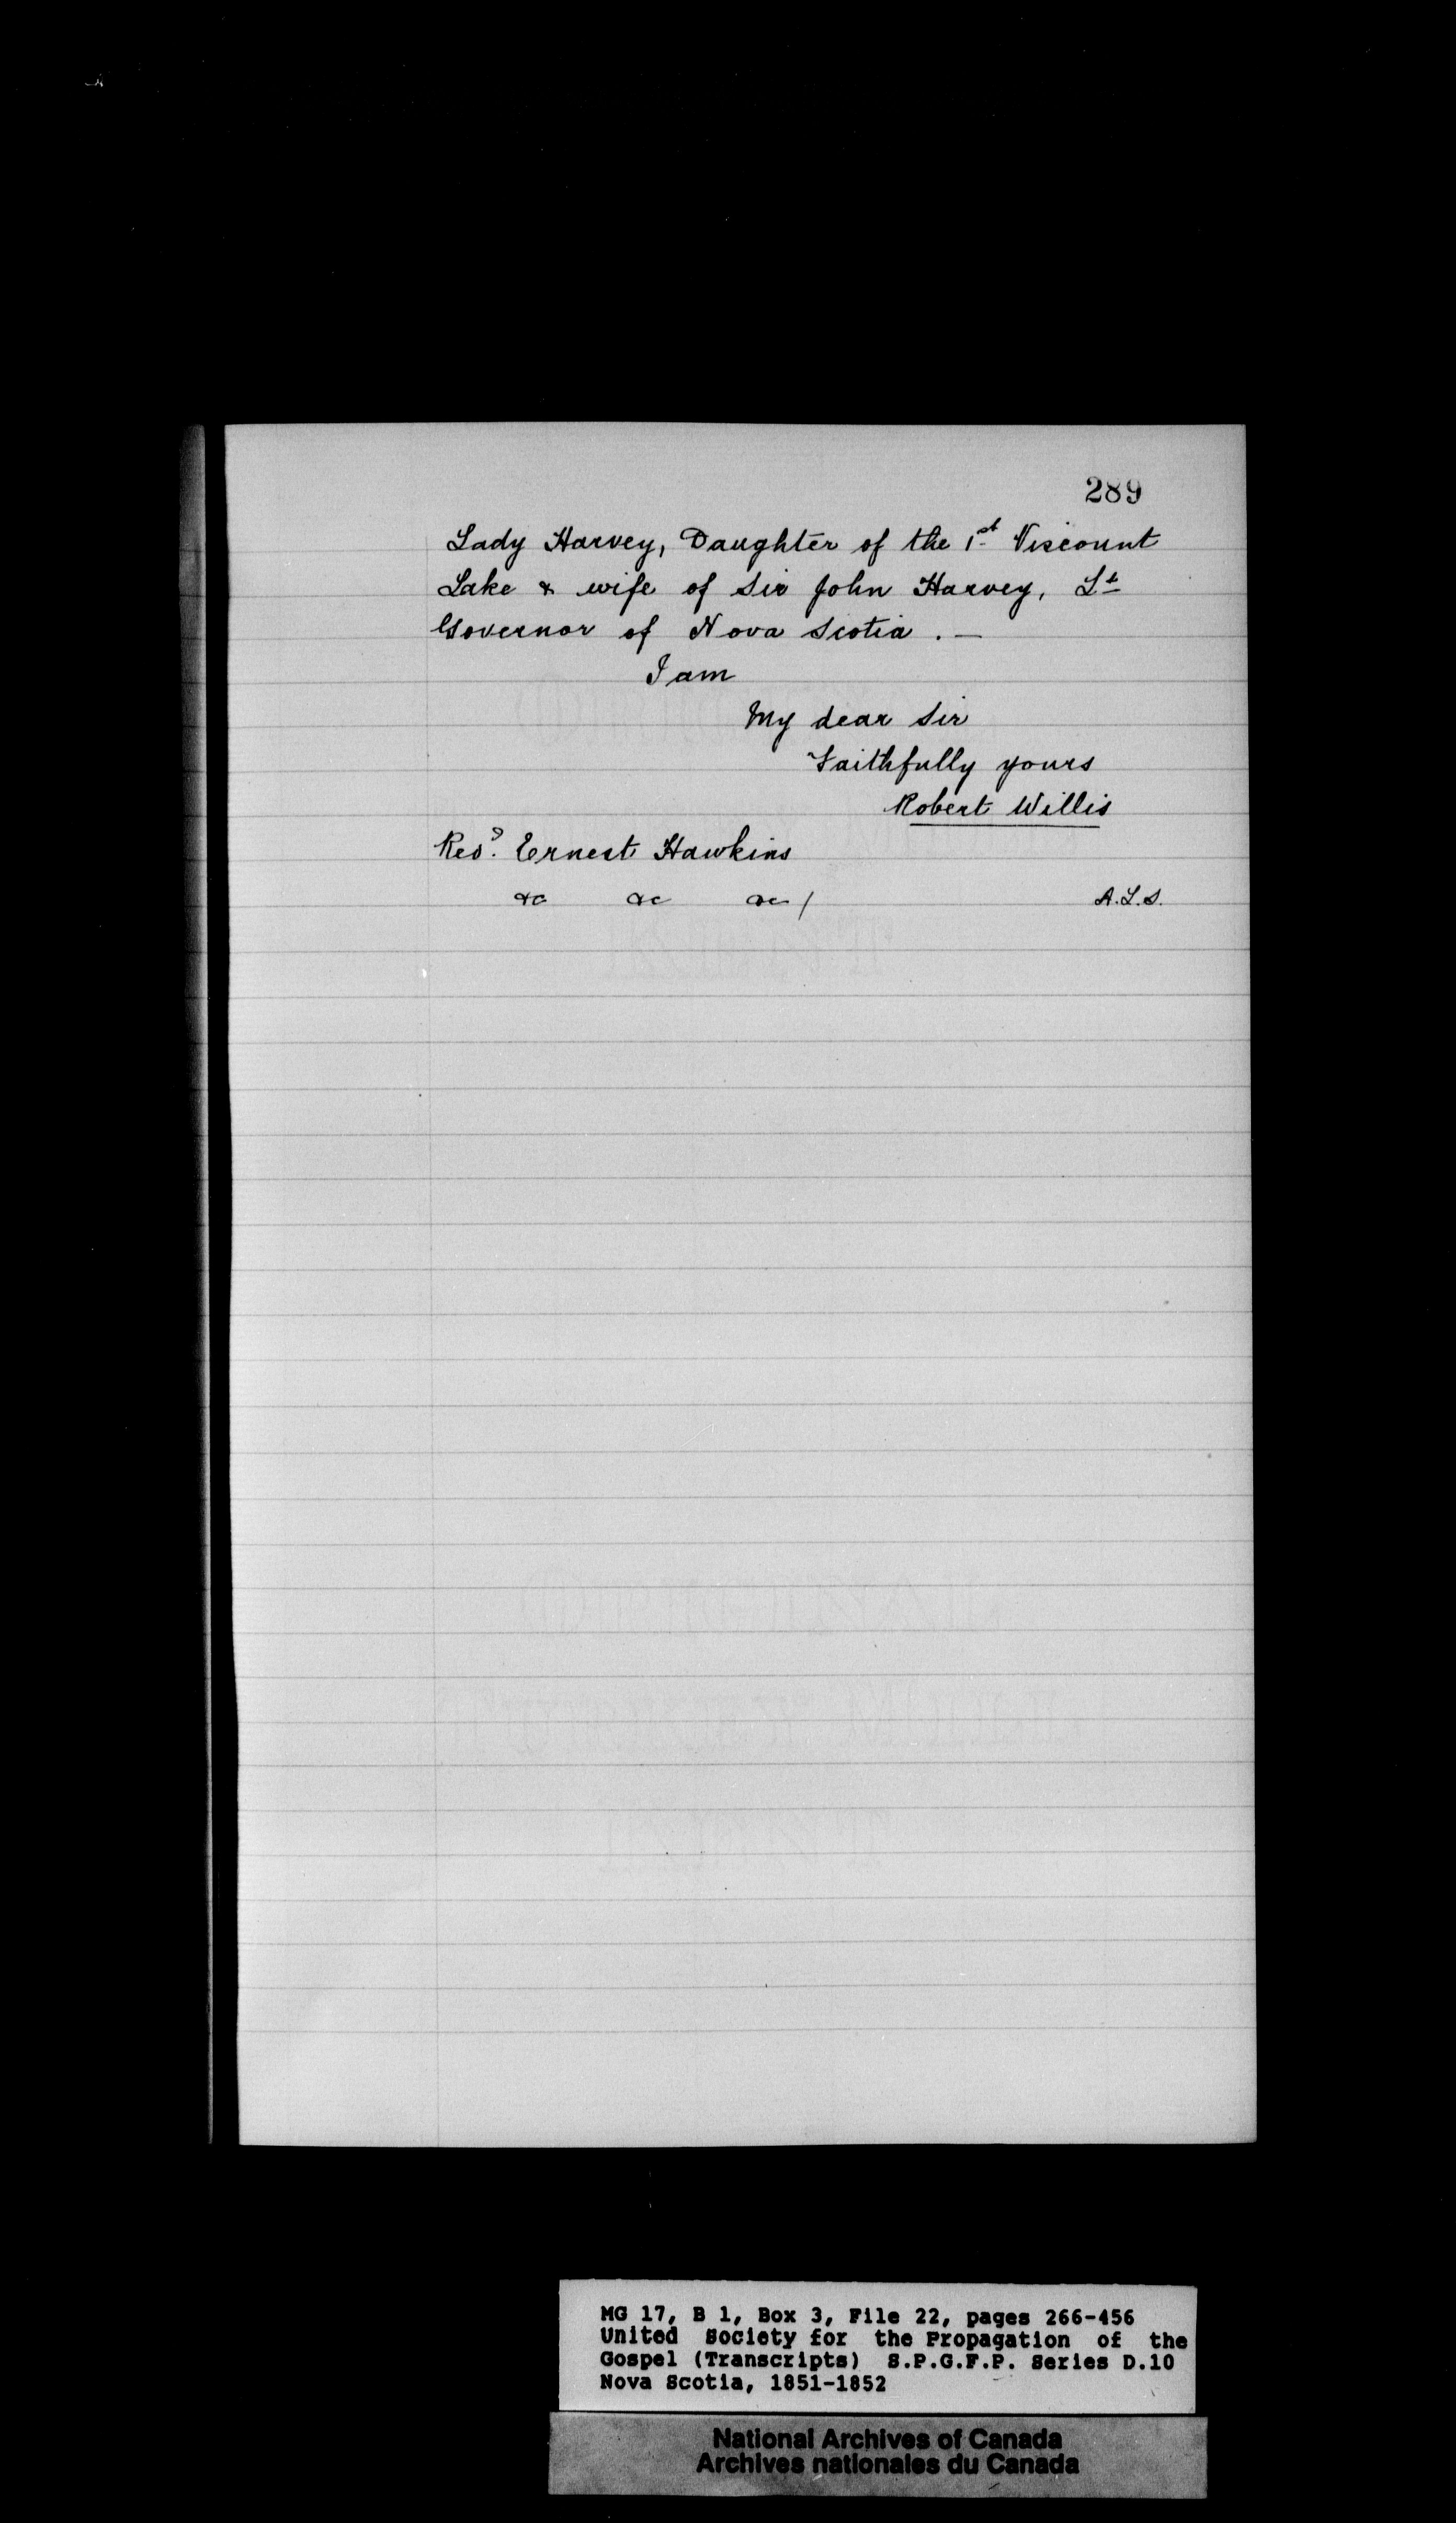 289
Lady Harvey, Daughter of the 1st Viscount
Lake & wife of Sir John Harvey, Lt
Governor of Nova Scotia . —
I am
My dear Sir
Faithfully yours
Robert Willis
Revd. Ernest Hawkins
&c &c &c /
A.L.S.
MG 17, B 1, Box 3, File 22, pages 266-456
United Society for the Propagation of the
Gospel (Transcripts) S.P.G.F.P. Series D.10
Nova Scotia, 1851-1852
National Archives of Canada
Archives nationales du Canada